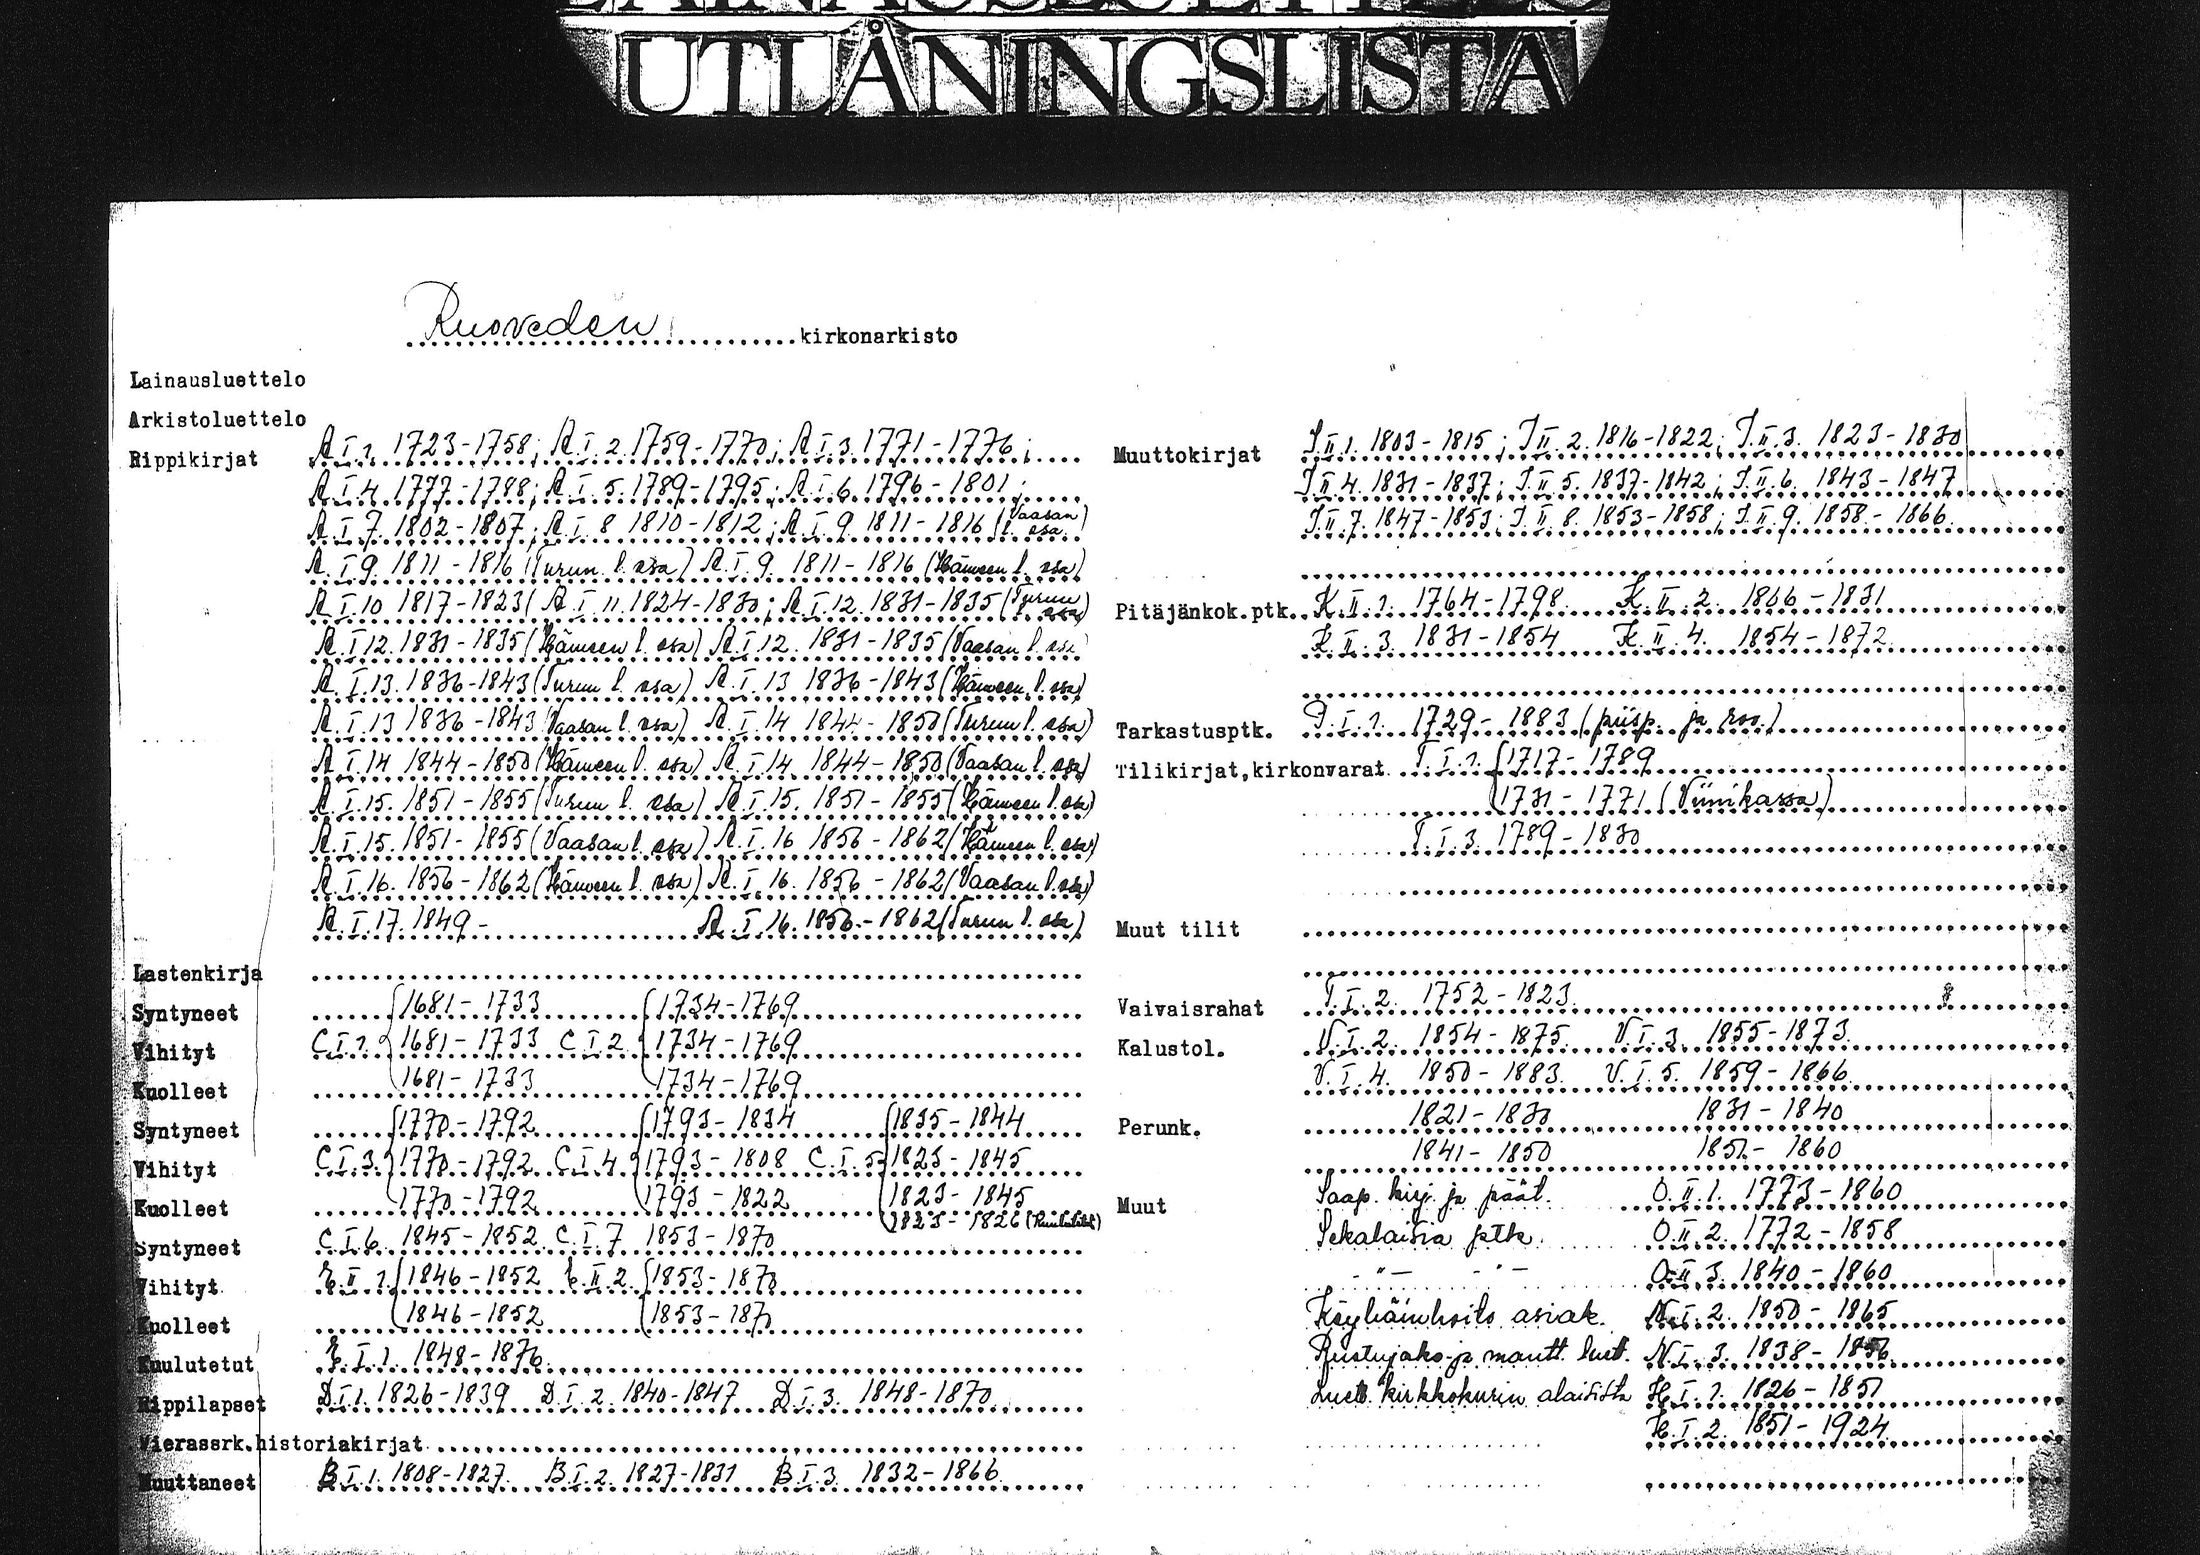 LAINAUSLUETTELO
UTLÅNINGSLISTA
Ruoveden kirkonarkisto
Lainausluettelo
Arkistoluettelo
Rippikirjat A.I.1. 1723-1758; A.I.2. 1759-1770; A.I.3. 1771-1776;
A.I.4 1777-1788; A.I.5. 1789-1795; A.I.6. 1796-1801;
A.I.7. 1802-1807; A.I.8 1810-1812; A.I.9 1811-1816 (Vaasan l. osa)
A.I.9. 1811-1816 (Turun l. osa) A.I.9. 1811-1816 (Hämeen l. osa)
A.I.10 1817-1823( A.I.11. 1824-1830; A.I.12. 1831-1835 (Turun l. osa)
A.I.12. 1831-1835 (Hämeen l. osa) A.I.12. 1831-1835 (Vaasan l. osa
A.I.13. 1836-1843 (Turun l. osa) A.I.13 1836-1843 (Hämeen l. osa)
A.I.13 1836-1843 Vaasan l. osa) A.I.14 1844-1850 (Turun l. osa)
A.I.14 1844-1850 (Hämeen l. osa) A.I.14. 1844-1850 (Vaasan l. osa)
A.I.15. 1851-1855 (Turun l. osa) A.I.15. 1851-1855 (Hämeen l. osa)
A.I.15. 1851-1855 (Vaasan l. osa) A.I.16 1856-1862 (Hämeen l. osa)
A.I.16. 1856-1862 (Hämeen l. osa) A.I.16. 1856-1862 (Vaasan l. osa)
A.I.17. 1849- A.I.16. 1856-1862 (Turun l. osa)
Lastenkirja
Syntyneet 1681-1733 1734-1769
Vihityt C.I.1. 1681-1733 C.I.2. 1734-1769
Kuolleet 1681-1733 1734-1769
Syntyneet 1770-1792 1793-1834 1835-1844
Vihityt C.I.3. 1770-1792 C.I.4. 1793-1808 C.I.5. 1823-1845
Kuolleet 1770-1792 1793-1822 1823-1845
1823-1826
Syntyneet C.I.6. 1845-1852 C.I.7 1853-1870
Vihityt E.II.1. 1846-1852 E.II.2. 1853-1870
Kuolleet 1846-1852 1853-187
Kuulutetut E.I.1. 1848-1876.
Rippilapset D.I.1. 1826-1839 D.I.2. 1840-1847 D.I.3. 1848-1870
Vierassrk.historiakirjat
Muuttaneet B.I.1. 1808-1827. B.I.2. 1827-1831 B.I.3. 1832-1866.
Muuttokirjat J.II.1. 1803-1815; J.II.2. 1816-1822; J.II.3. 1823-1830
J.II.4. 1831-1837; J.II.5. 1837-1842; J.II.6. 1843-1847
J.II.7. 1847-1853; J.II.8. 1853-1858; J.II.9. 1858-1866.
Pitäjänkok.ptk. K.II.1. 1764-1798. K.II.2. 1806-1831
K.II.3. 1831-1854 K.II.4. 1854-1872
Tarkastusptk. P.I.1. 1729-1883 (piisp. ja rov.)
Tilikirjat,kirkonvarat T.I.1. 1717-1789
1731-1771 (Viinikassa)
T.I.3. 1789-1830
Muut tilit
Vaivaisrahat T.I.2. 1752-1823.
Kalustol. V.I.2. 1854-1875. V.I.3. 1855-1873.
V.I.4. 1850-1883. V.I.5. 1859-1866.
Perunk. 1821-1830 1831-1840
1841-1850 1851-1860
Muut Saap. kirj. ja päät. O.II.1. 1773-1860
Sekalaisia ptk. O.II.2. 1772-1858
-"- -"- O.II.3. 1840-1860
Köyhäinhoito asiak. N.I.2. 1850-1865
Ruotujako- ja mantt. luett. N.I.3. 1838-1856
Luett. kirkkokurin alaisista H.I.1. 1826-1851
H.I.2. 1851-1924